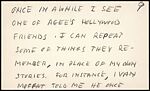 ONCE IN AWHILE I SEE
ONE OF AGEE'S HOLLYWOOD
FRIENDS. I CAN REPEAT
SOME OF THINGS THEY RE-
MEMBER, IN PLACE OF MY OWN
STORIES. FOR INSTANCE, IVAN
MOFFAT TOLD ME HE ONCE